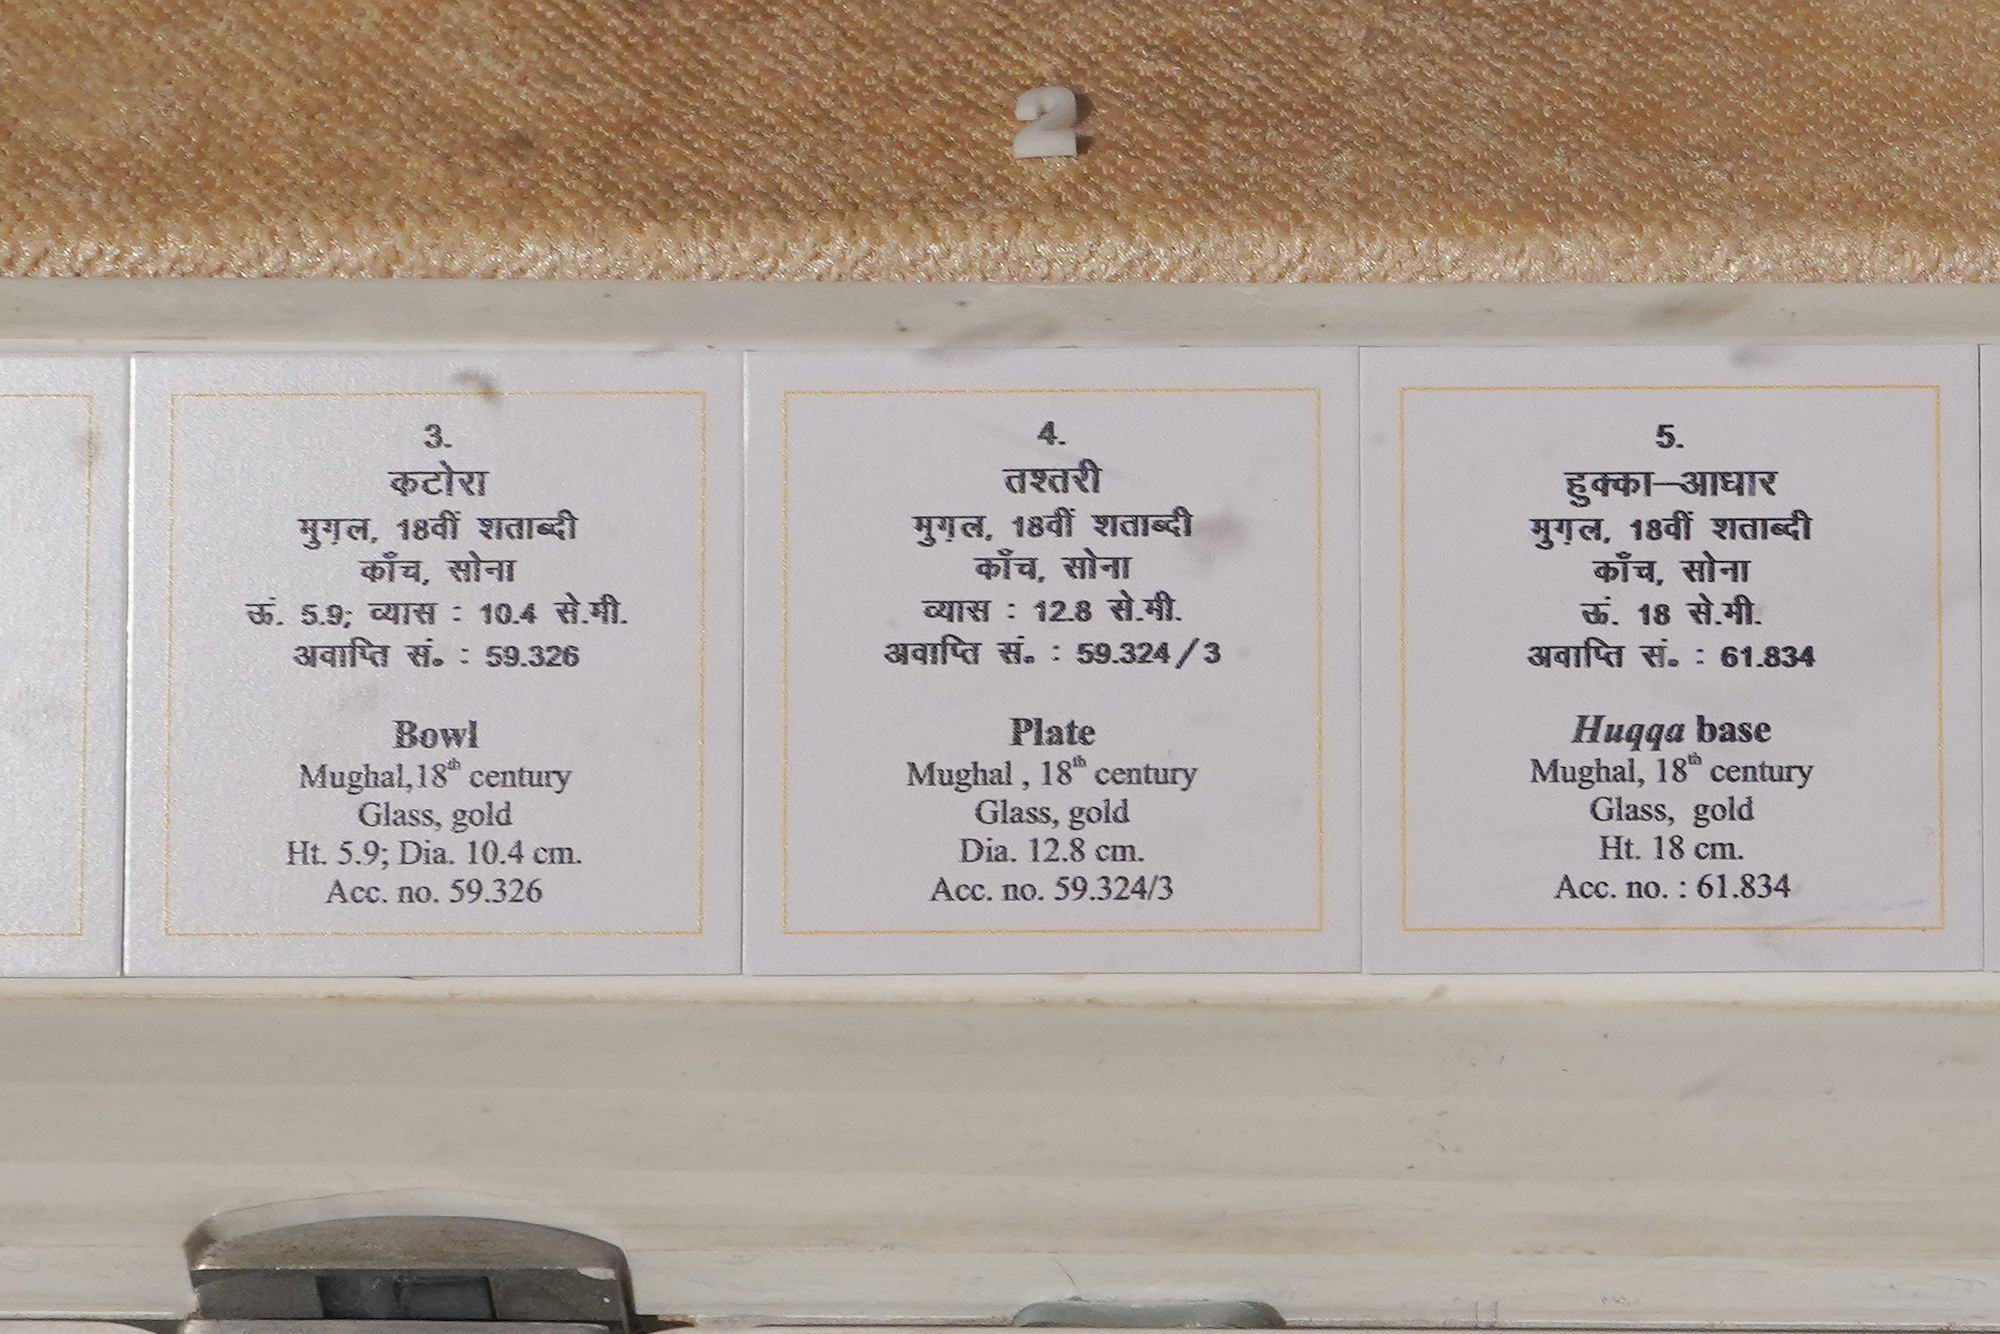 2
3.
कटोरा
मुग़ल, 18वीं शताब्दी
काँच, सोना
ऊं. 5.9; व्यास : 10.4 से.मी.
अवाप्ति सं॰ : 59.326
Bowl
Mughal,18th century
Glass, gold
Ht. 5.9; Dia. 10.4 cm.
Acc. no. 59.326
4.
तश्तरी
मुग़ल, 18वीं शताब्दी
काँच, सोना
व्यास : 12.8 से.मी.
अवाप्ति सं॰ : 59.324/3
Plate
Mughal , 18th century
Glass, gold
Dia. 12.8 cm.
Acc. no. 59.324/3
5.
हुक्का–आधार
मुग़ल, 18वीं शताब्दी
काँच, सोना
ऊं. 18 से.मी.
अवाप्ति सं॰ : 61.834
Huqqa base
Mughal, 18th century
Glass, gold
Ht. 18 cm.
Acc. no. : 61.834